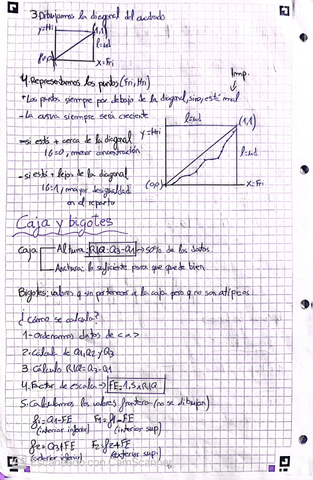 3. Dibujamos la diagonal del cuadrado
y=Hi
(1,1)
l=ud
(0,0)
x=Fri
4. Representamos los puntos (Fri, Hri)
Imp.
* Los puntos siempre por debajo de la diagonal, sino, está mal
- La curva siempre será creciente
l=ud
(1,1)
y=Hri
- si está + cerca de la diagonal
IG=0, menor concentración
l=ud
- si está + lejos de la diagonal
IG=1, mayor desigualdad
en el reparto
(0,0)
x=Fri
Caja y bigotes
Caja
Altura: RIQ=Q3-Q1 → 50% de los datos
Anchura: lo suficiente para que quede bien
Bigotes: valores q sin pertenecer a la caja pero q no son atípicos
¿Cómo se calcula?
1- Ordenamos datos de < a >
2. Calculo de Q1, Q2 y Q3
3. Cálculo RIQ=Q3-Q1
4. Factor de escala → FE=1,5xRIQ
5. Calculamos los valores frontera (no se dibujan)
f1=Q1-FE F1=f1-FE
(interior inferior) (inferior sup)
f2=Q3+FE F2=f2+FE